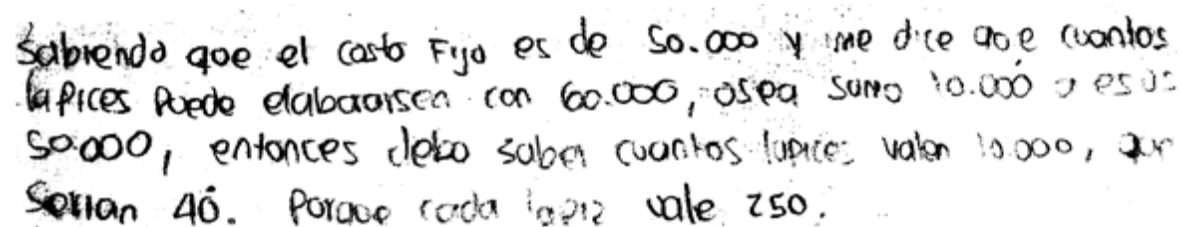 Sabiendo que el costo Fijo es de 50.000 y me dice que cuantos
lapices Puede elaborarsen con 60.000, osea sumo 10.000 a esos
50.000, entonces debo saber cuantos lapices valen 10.000, que
Serian 40. Porque cada lapiz vale 250.